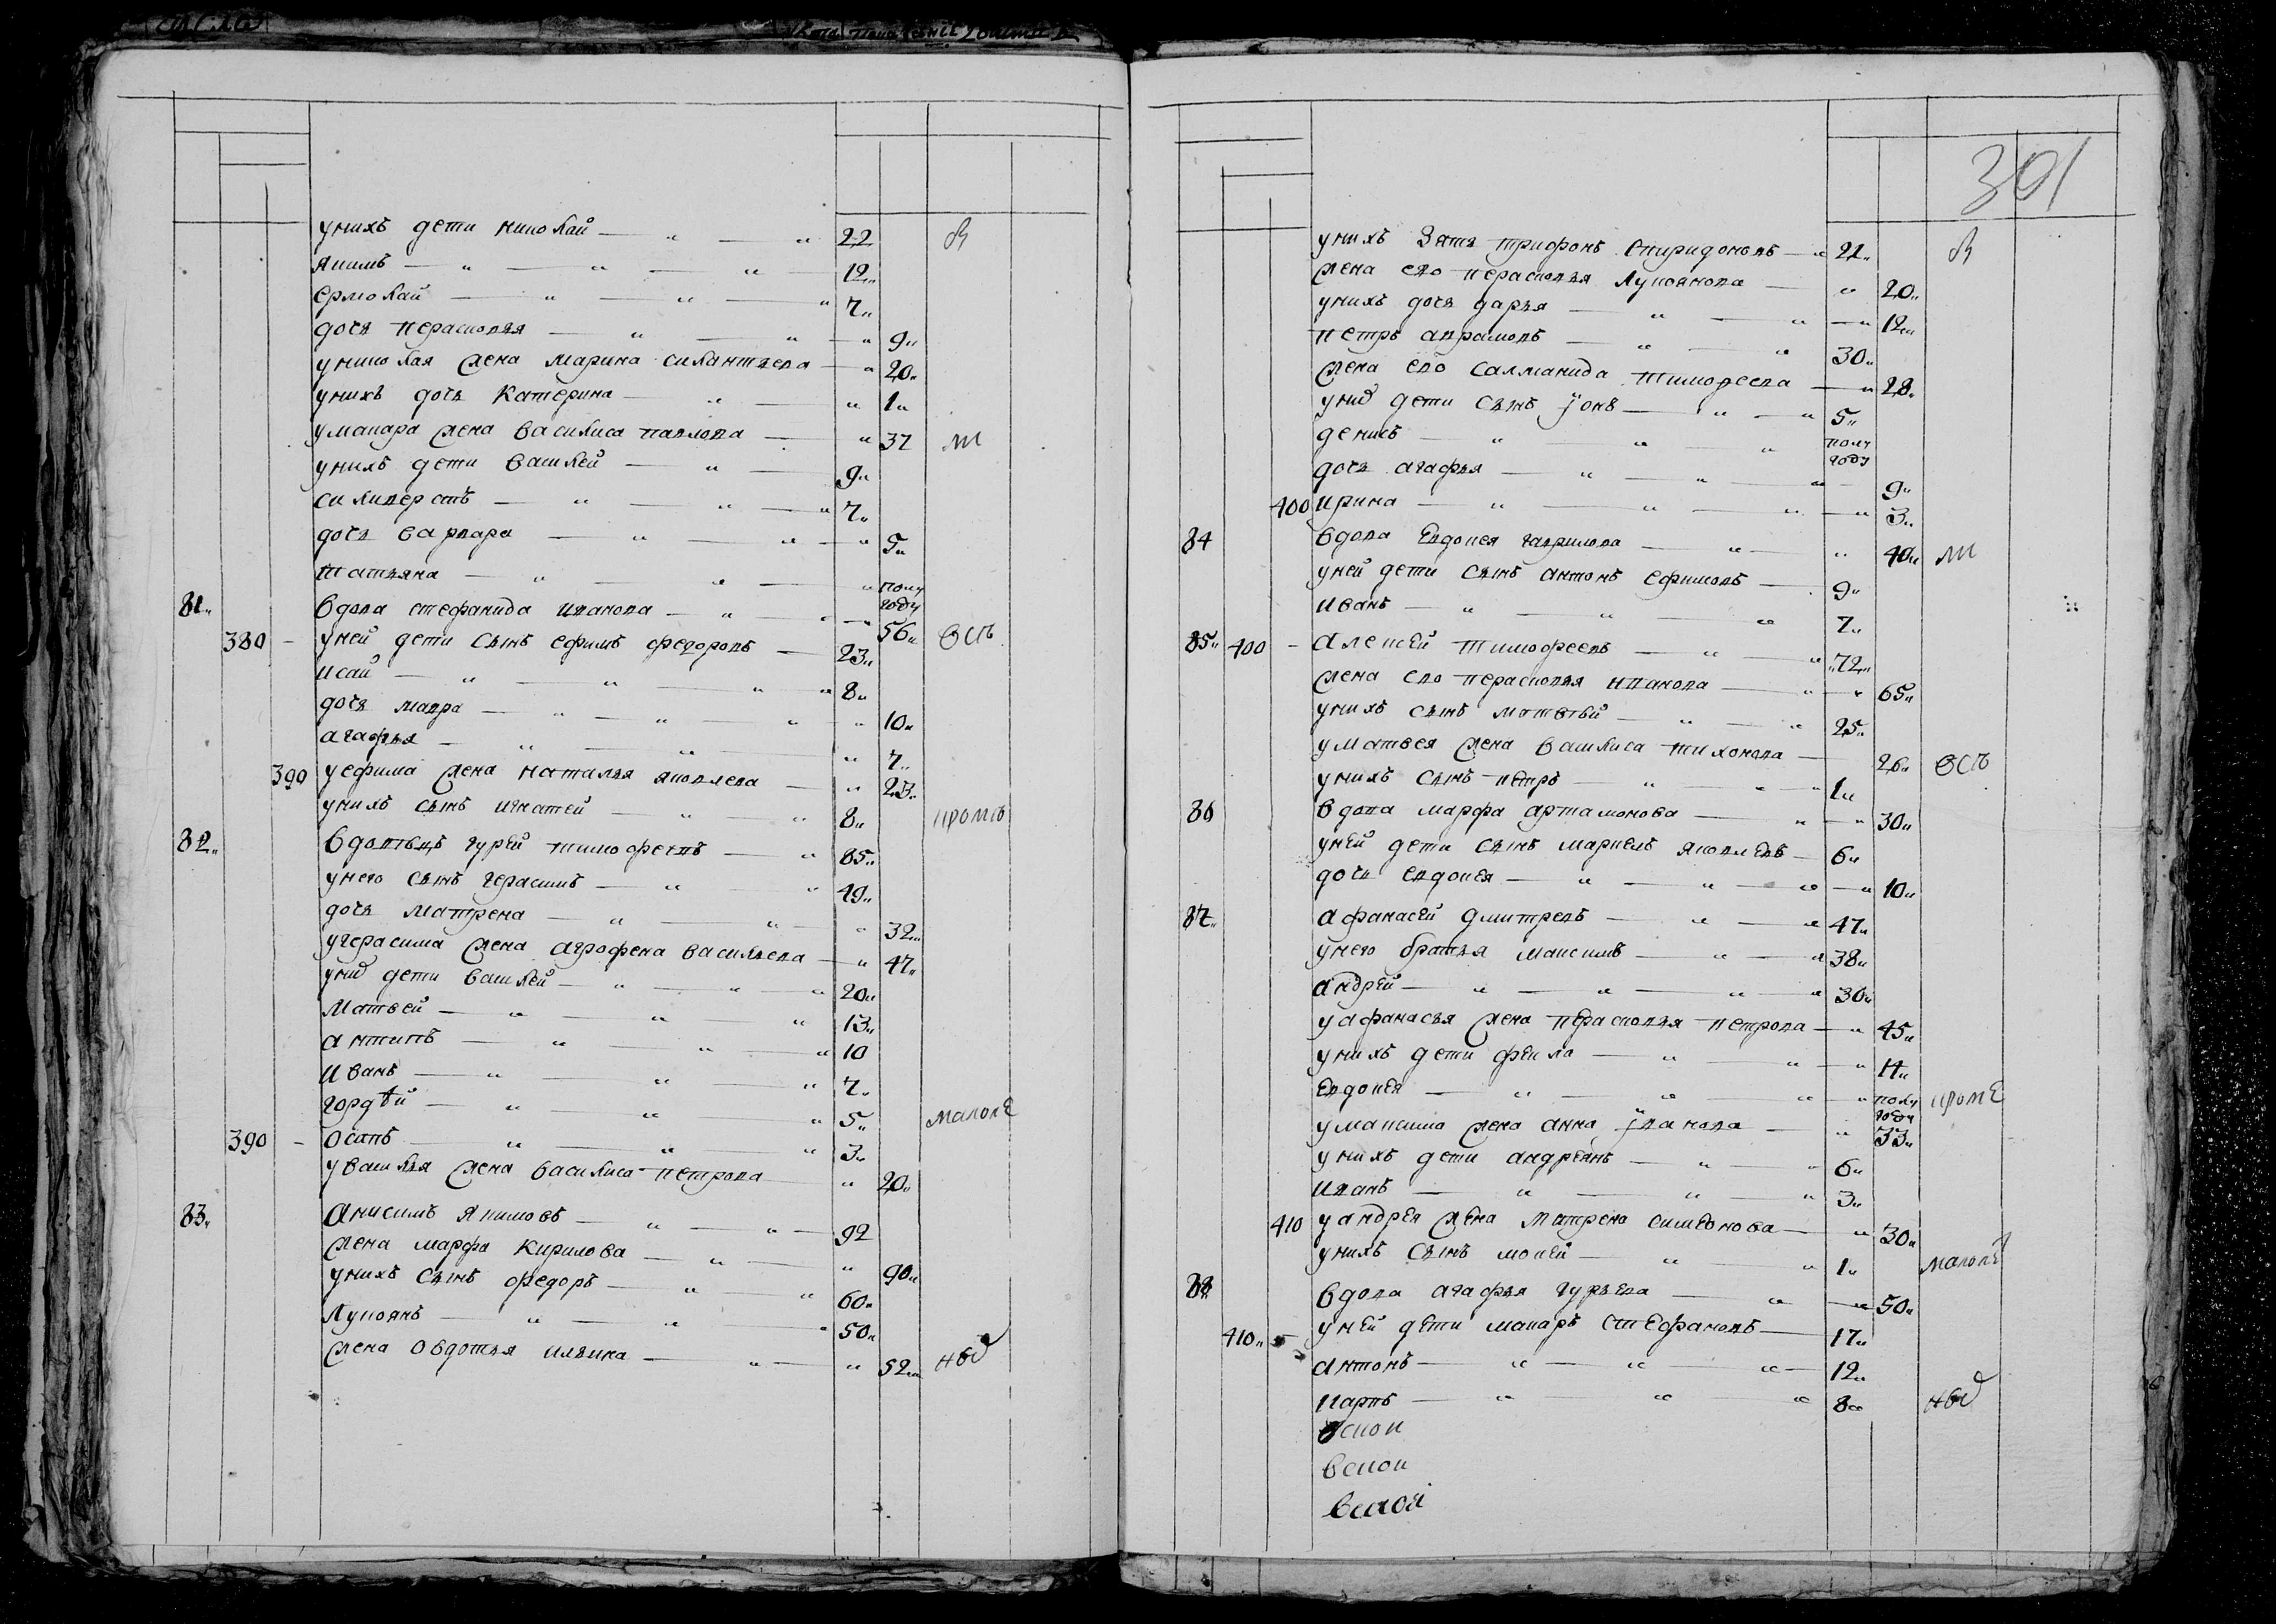 унихъ дети николай — „ — „ 22 В
якимъ — „ — „ — „ 12„
ермолай — „ — „ — „ 7„
дочь парасковья — „ — „ — „ 9„
униколая жена марина силантьева — „ 20„
унихъ дочь катерина — „ — „ 1„
умакара жена василиса павлова — „ 37
унихъ дети василей — „ — 9„
силиверстъ — „ — „ — „ 7„
дочь варвара — „ — „ — „ 5„
татьяна — „ — „ — „ полу году
81„ вдова стефанида иванова — „ — „ 56„
380 – уней дети сынъ ефимъ федоровъ — 23„
исай — „ — „ — „ — „ 8„
дочь мавра — „ — „ — „ — „ 10„
агафья — „ — „ — „ 7„
390 уефима жена наталья яковлева — „ 23„
унихъ сынъ игнатей — „ — „ 8„
82„ вдовецъ гурей тимофеевъ — „ 85„
унего сынъ герасимъ — „ — „ 49„
дочь матрена — „ — „ — „ 32„
угерасима жена агрофена васильева — „ 47„
унид дети василей — „ — „ — „ 20„
матвей — „ — „ — „ 13„
антипъ — „ — „ — „ 10
иванъ — „ — „ — „ 7„
гордѣй — „ — „ — „ 5„ малолѣ
390 – осипъ — „ — „ — „ 3„
увасилья жена василиса петрова — „ 20„
83„ анисимъ якимовъ — „ — „ — 92
жена марфа кирилова — „ — „ 90„
унихъ сынъ федоръ — „ — „ 60„
лукоянъ — „ — „ — „ 50„
жена овдотья ильина — „ — „ 52„
301
унихъ зять трифонъ спиридоновъ — „ 21„ В
жена ево парасковья лукоянова — „ 20„
унихъ дочь дарья — „ — „ — „ 12„
петръ аврамовъ — „ — „ 30„
жена ево салманида тимофеева — „ 28„
унид дети сынъ іонъ — „ — „ 5„
денисъ — „ — „ — „ полу году
дочь агафья — „ — „ — „ 9„
400 ирина — „ — „ — „ — „ 3„
84 вдова евдокея гаврилова — „ — „ 40„
уней дети сынъ антонъ ефимовъ — 9„
иванъ — „ — „ — „ 7„
85„ 400 – алексей тимофеевъ — „ — „ 72„
жена ево парасковья иванова — „ — „ 65„
унихъ сынъ матвѣй — „ — „ 25„
уматвея жена василиса тихонова — 26„
унихъ сынъ петръ — „ — „ — „ 1„
86 вдова марфа артамонова — „ — „ 30„
уней дети сынъ маркелъ яковлевъ — 6„
дочь евдокея — „ — „ — „ — „ 10„
87„ афанасей дмитревъ — „ — „ 47„
унего братья максимъ — „ — „ 38„
андрей — „ — „ — „ — „ 30„
уафанасья жена парасковья петрова — „ 45„
унихъ дети фекла — „ — „ — „ 11„
евдокея — „ — „ — „ — „ полу году
умаксима жена анна іванова — „ 33„
унихъ дети андреянъ — „ — „ 6„
иванъ — „ — „ — „ 3„
410 уандрея жена матрена симеонова — „ 30„
унихъ сынъ мокей — „ — „ 1„ малолѣ
88 вдова агафья гурьева — „ — „ 50„
410„ уней дети макаръ стефановъ — 17„
антонъ — „ — „ — „ — 12„
карпъ — „ — „ — „ 8„